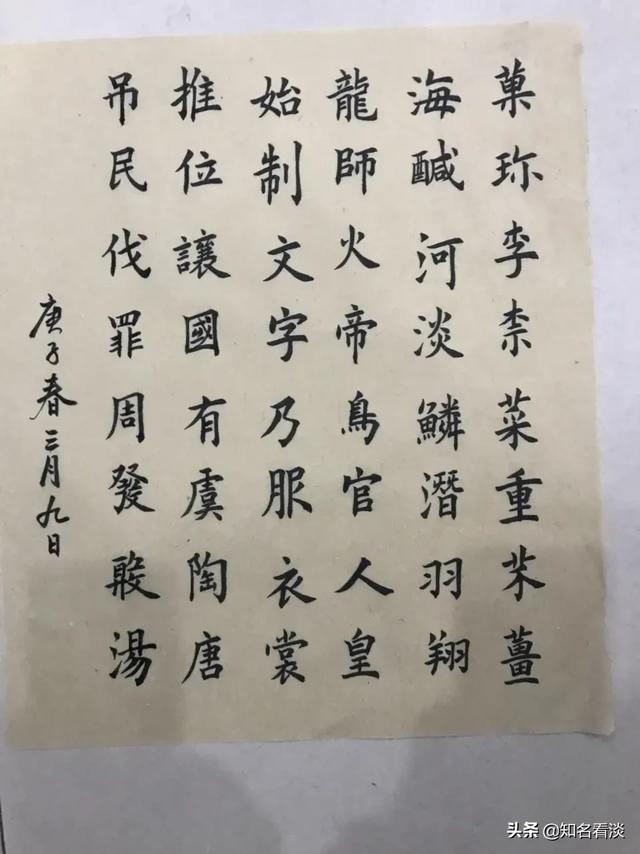 菓珎李柰菜重芥薑
海醎河淡鱗潛羽翔
龍師火帝鳥官人皇
始制文字乃服衣裳
推位讓國有虞陶唐
吊民伐罪周發殷湯
庚子春三月九日
头条 @知名看淡